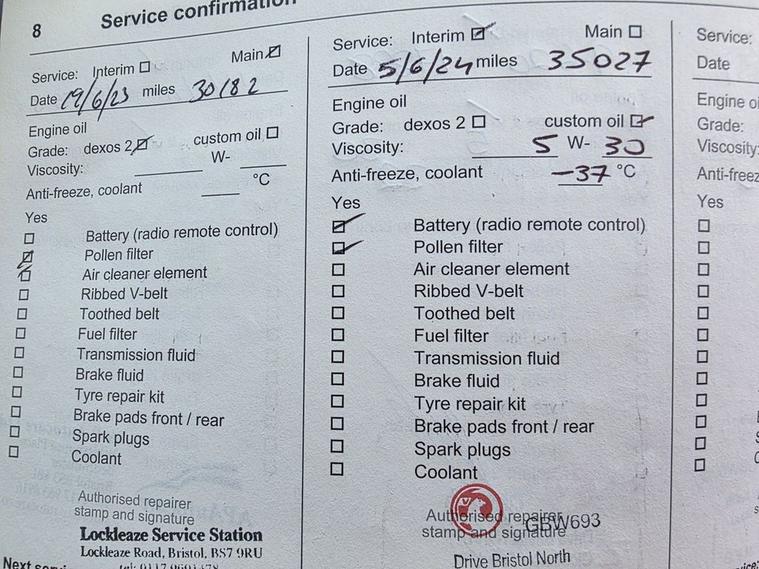 8
Service confirmation
Service: Interim ☐ Main ☑
Date 19/6/23 miles 30182
Engine oil
Grade: dexos 2 ☑ custom oil ☐
Viscosity: W-
Anti-freeze, coolant °C
Yes
☐ Battery (radio remote control)
☑ Pollen filter
☑ Air cleaner element
☐ Ribbed V-belt
☐ Toothed belt
☐ Fuel filter
☐ Transmission fluid
☐ Brake fluid
☐ Tyre repair kit
☐ Brake pads front / rear
☐ Spark plugs
☐ Coolant
Authorised repairer
stamp and signature
Lockleaze Service Station
Lockleaze Road, Bristol, BS7 9RU
Service: Interim ☑ Main ☐
Date 5/6/24 miles 35027
Engine oil
Grade: dexos 2 ☐ custom oil ☑
Viscosity: 5 W- 30
Anti-freeze, coolant -37 °C
Yes
☑ Battery (radio remote control)
☑ Pollen filter
☐ Air cleaner element
☐ Ribbed V-belt
☐ Toothed belt
☐ Fuel filter
☐ Transmission fluid
☐ Brake fluid
☐ Tyre repair kit
☐ Brake pads front / rear
☐ Spark plugs
☐ Coolant
Authorised repairer
stamp and signature
GBW693
Drive Bristol North
Service:
Date
Engine
Grade:
Viscosity:
Yes